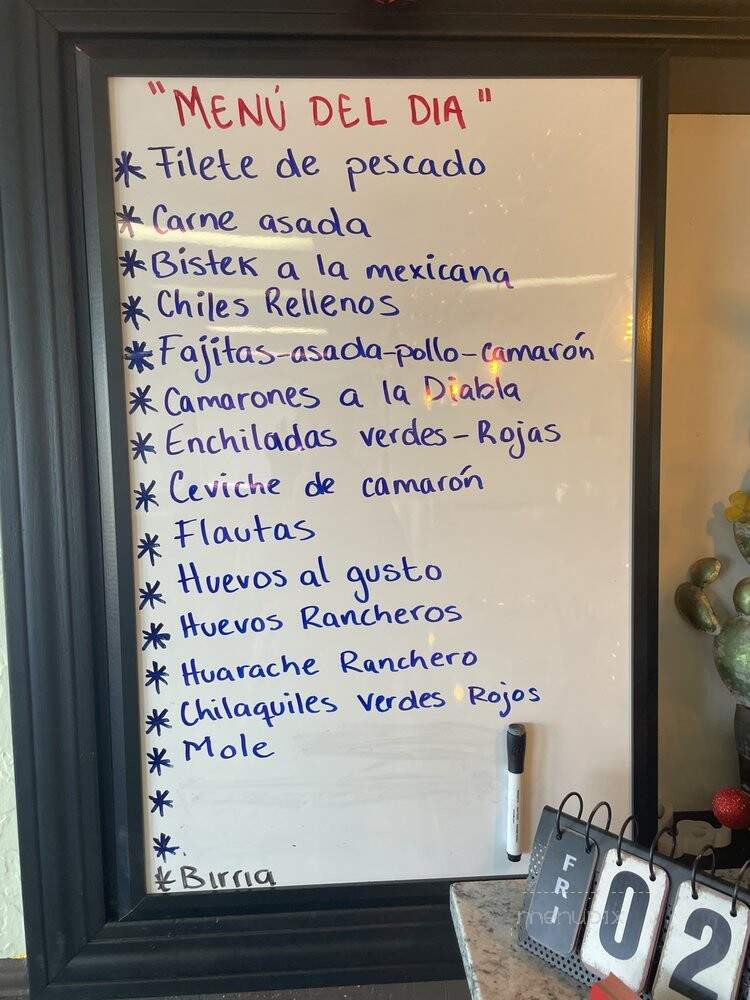 "MENÚ DEL DIA"
* Filete de pescado
* Carne asada
* Bistek a la mexicana
* Chiles Rellenos
* Fajitas-asada-pollo-camarón
* Camarones a la Diabla
* Enchiladas verdes-Rojas
* Ceviche de camarón
* Flautas
* Huevos al gusto
* Huevos Rancheros
* Huarache Ranchero
* Chilaquiles verdes Rojos
* Mole
*
*
* Birria
FRI 02
menupix